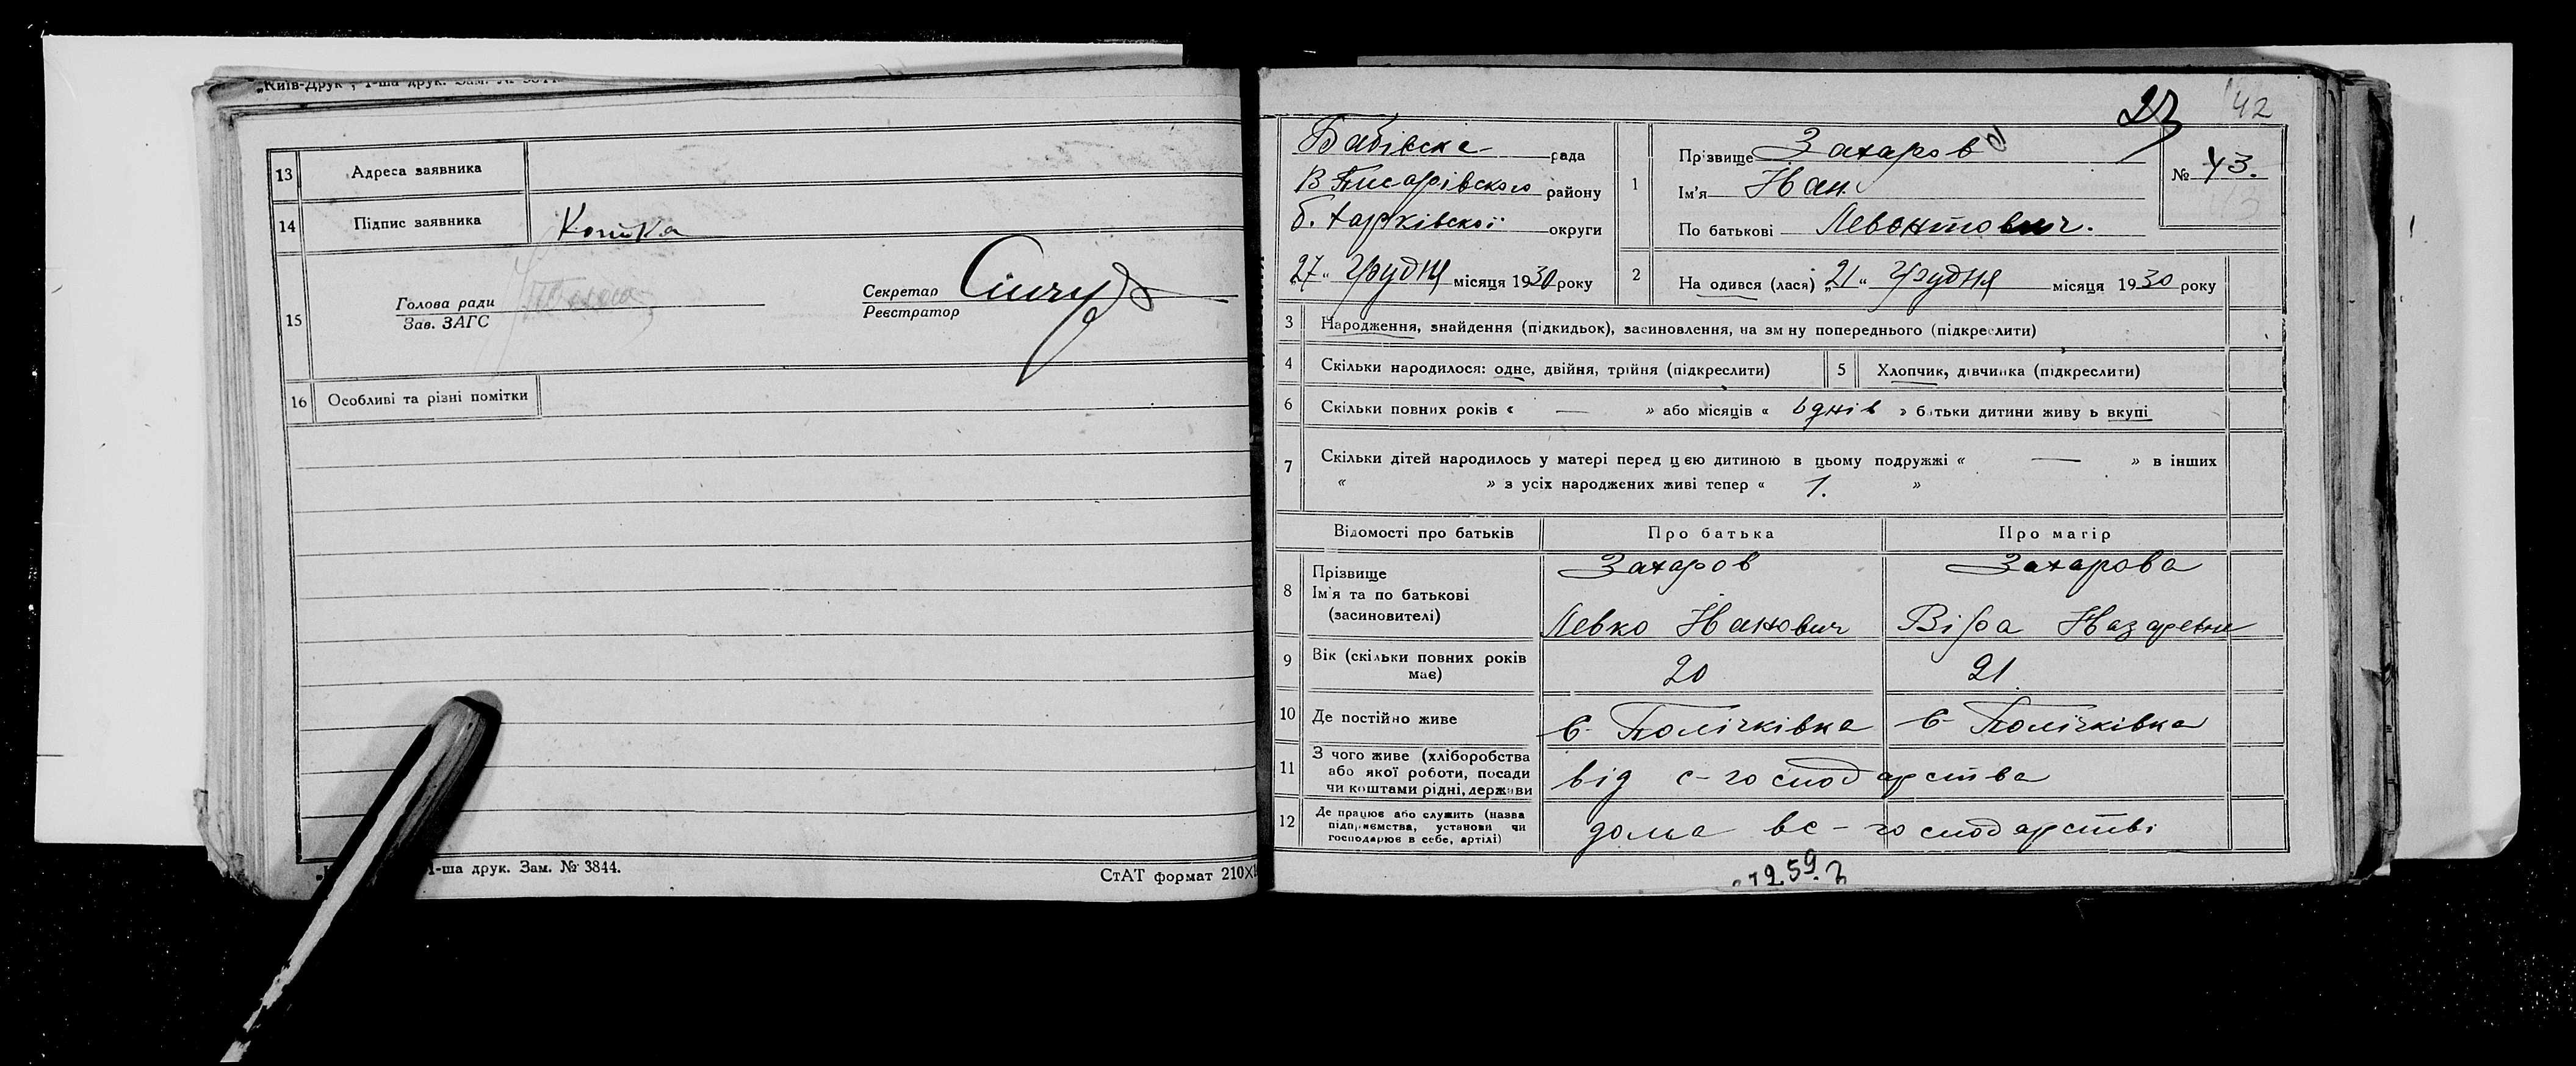 „Київ-Друк", 1-ша друк. Зам. №
13 Адреса заявника
14 Підпис заявника
15 Голова ради Секретар
Зав. ЗАГС Реєстратор
16 Особливі та різні помітки
1-ша друк. Зам. № 3844.
СтАТ формат 210×
42
Бабівська рада
В Писарівского району
б. Харківської округи
„27„ Грудня місяця 1930 року
1 Прізвище Захаров
Ім'я Іван
По батькові Левонтович.
№ 43.
2 На одився (лася) „21" Грудня місяця 1930 року
3 Народження, знайдення (підкидьок), засиновлення, на зм ну попереднього (підкреслити)
4 Скільки народилося: одне, двійня, трійня (підкреслити) 5 Хлопчик, дівчинка (підкреслити)
6 Скільки повних років « — » або місяців « 6 днів » батьки дитини живу ь вкупі
7 Скільки дітей народилось у матері перед цією дитиною в цьому подружжі « — » в інших
« » з усіх народжених живі тепер « 1. »
Відомості про батьків Про батька Про матір
8 Прізвище Захаров Захарова
Ім'я та по батькові
(засиновителі) Левко Іванович Віра Назаревна
9 Вік (скільки повних років має) 20 21
10 Де постійно живе с. Полічківка с. Полічківка
11 З чого живе (хліборобства
або якої роботи, посади від с-господарства
чи коштами рідні, держави
12 Де працює або служить (назва
підприємства, установи чи дома в с-господарстві
господарює в себе, артілі)